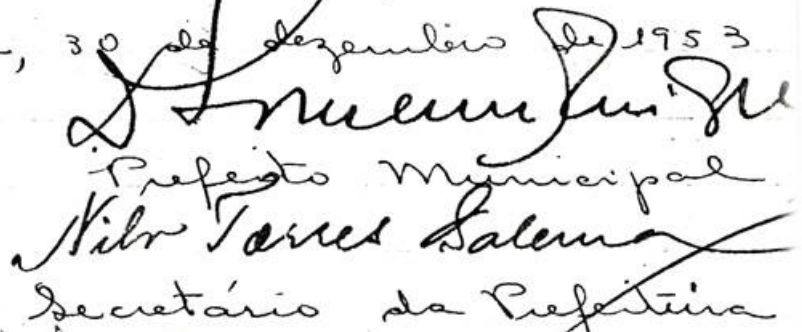 , 30 de dezembro de 1953
Prefeito Municipal
Nilo Torres Salerno
Secretário da Prefeitura